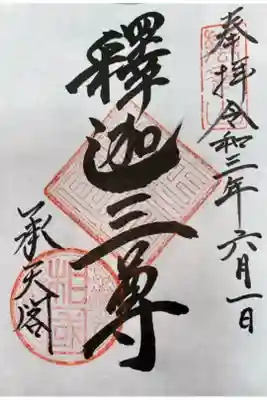 奉拝 令和三年六月一日
釋迦三尊
承天閣
相国